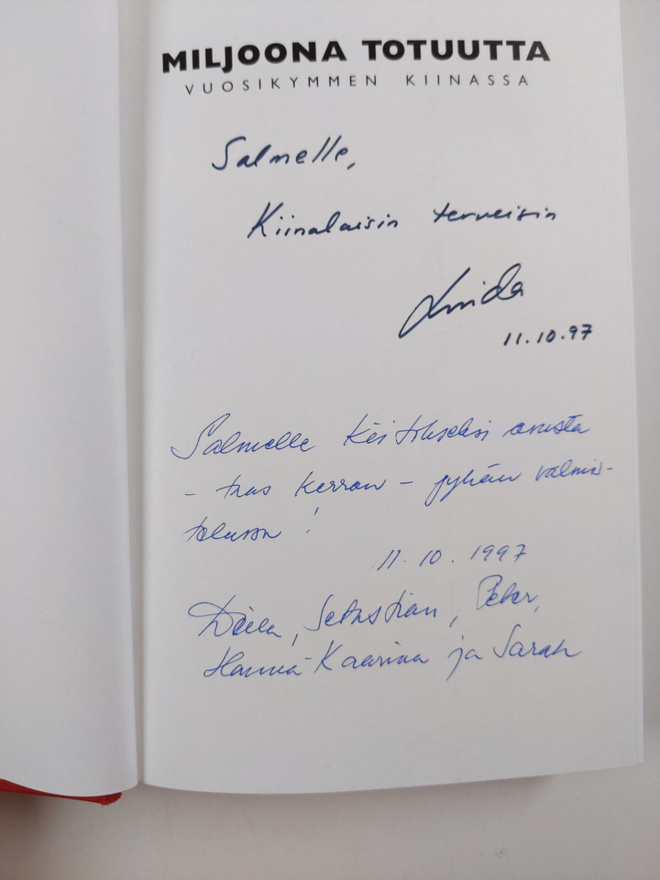 MILJOONA TOTUUTTA
VUOSIKYMMEN KIINASSA
Salmelle,
Kiinalaisin terveisin
Linda
11.10.97
Salmelle kiitokseksi avusta
- taas kerran - juhlan valmis-
telussa!
11.10.1997
Sebastian, Peter,
Hanna-Kaarina ja Sarah